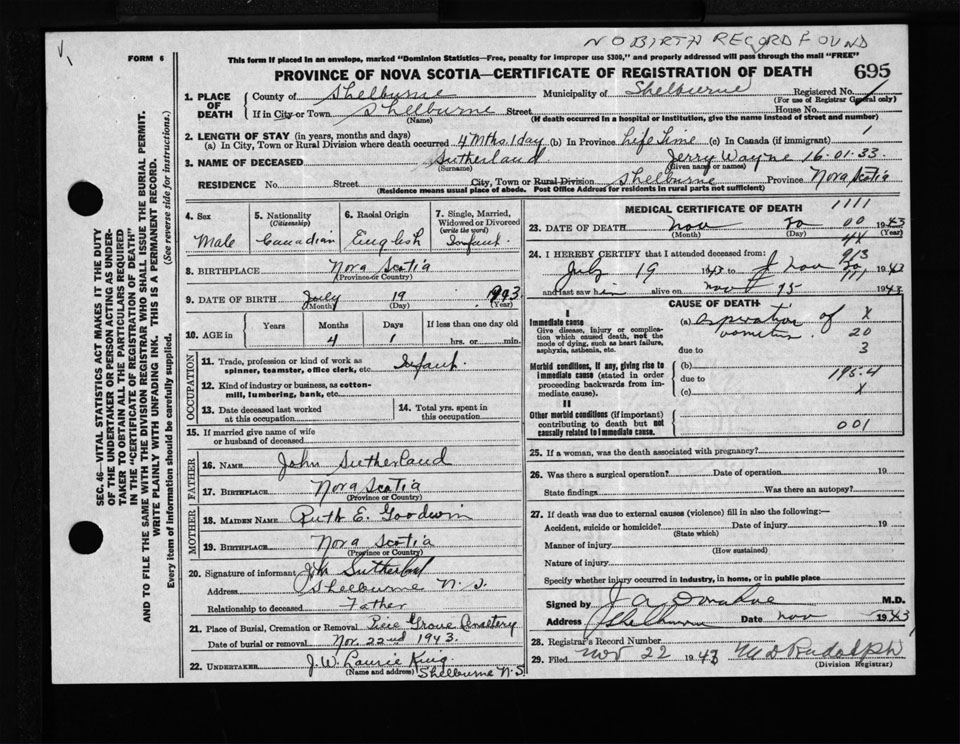 NO BIRTH RECORD FOUND
FORM 6
This form if placed in an envelope, marked "Dominion Statistics—Free, penalty for improper use $300," and properly addressed will pass through the mail "FREE"
PROVINCE OF NOVA SCOTIA—CERTIFICATE OF REGISTRATION OF DEATH 695
1. PLACE OF DEATH
County of Shelburne Municipality of Shelburne Registered No.
(For use of Registrar General only)
If in City or Town Shelburne Street House No.
(Name) (If death occurred in a hospital or institution, give the name instead of street and number)
2. LENGTH OF STAY (in years, months and days)
(a) In City, Town or Rural Division where death occurred 4 Mths. 1 day (b) In Province Life Time (c) In Canada (if immigrant) 1
3. NAME OF DECEASED Sutherland Jerry Wayne 16.01.33.
(Surname) (Given name or names)
RESIDENCE No. Street City, Town or Rural Division Shelburne Province Nova Scotia
(Residence means usual place of abode. Post Office Address for residents in rural parts not sufficient)
4. Sex Male
5. Nationality (Citizenship) Canadian
6. Racial Origin English
7. Single, Married, Widowed or Divorced (write the word) Infant.
8. BIRTHPLACE Nova Scotia
(Province or Country)
9. DATE OF BIRTH July 19 1943.
(Month) (Day) (Year)
10. AGE in Years Months Days If less than one day old
4 1 hrs. or min.
OCCUPATION
11. Trade, profession or kind of work as spinner, teamster, office clerk, etc. Infant.
12. Kind of industry or business, as cotton-mill, lumbering, bank, etc.
13. Date deceased last worked at this occupation
14. Total yrs. spent in this occupation
15. If married give name of wife or husband of deceased
FATHER
16. NAME John Sutherland
17. BIRTHPLACE Nova Scotia
(Province or Country)
MOTHER
18. MAIDEN NAME Ruth E. Goodwin
19. BIRTHPLACE Nova Scotia
(Province or Country)
20. Signature of informant John Sutherland
Address Shelburne N.S.
Relationship to deceased Father
21. Place of Burial, Cremation or Removal Pine Grove Cemetery
Date of burial or removal Nov. 22nd 1943.
22. UNDERTAKER J. W. Laurie King.
(Name and address) Shelburne N.S
MEDICAL CERTIFICATE OF DEATH 1111
23. DATE OF DEATH Nov 20 00 1943
(Month) (Day) (Year)
44
24. I HEREBY CERTIFY that I attended deceased from: 913
July 19 1943 to Nov 20 1943
111
and last saw him alive on Nov 15 1943
CAUSE OF DEATH
I
Immediate cause
Give disease, injury or complication which caused death, not the mode of dying, such as heart failure, asphyxia, asthenia, etc.
(a) aspiration of X
vomitus. 20
due to 3
Morbid conditions, if any, giving rise to immediate cause (stated in order proceeding backwards from immediate cause).
(b)
due to 195.4
(c) X
II
Other morbid conditions (if important) contributing to death but not causally related to immediate cause.
001
25. If a woman, was the death associated with pregnancy?
26. Was there a surgical operation? Date of operation 19
State findings Was there an autopsy?
27. If death was due to external causes (violence) fill in also the following:—
Accident, suicide or homicide? Date of injury 19
(State which)
Manner of injury
(How sustained)
Nature of injury
Specify whether injury occurred in industry, in home, or in public place
Signed by J A Donahoe M.D.
Address Shelburne Date Nov 1943
28. Registrar's Record Number
29. Filed Nov 22 1943 M D Rudolph
(Division Registrar)
SEC. 46—VITAL STATISTICS ACT MAKES IT THE DUTY
OF THE UNDERTAKER OR PERSON ACTING AS UNDER-
TAKER TO OBTAIN ALL THE PARTICULARS REQUIRED
IN THE "CERTIFICATE OF REGISTRATION OF DEATH"
AND TO FILE THE SAME WITH THE DIVISION REGISTRAR WHO SHALL ISSUE THE BURIAL PERMIT.
WRITE PLAINLY WITH UNFADING INK. THIS IS A PERMANENT RECORD.
Every item of information should be carefully supplied. (See reverse side for instructions.)